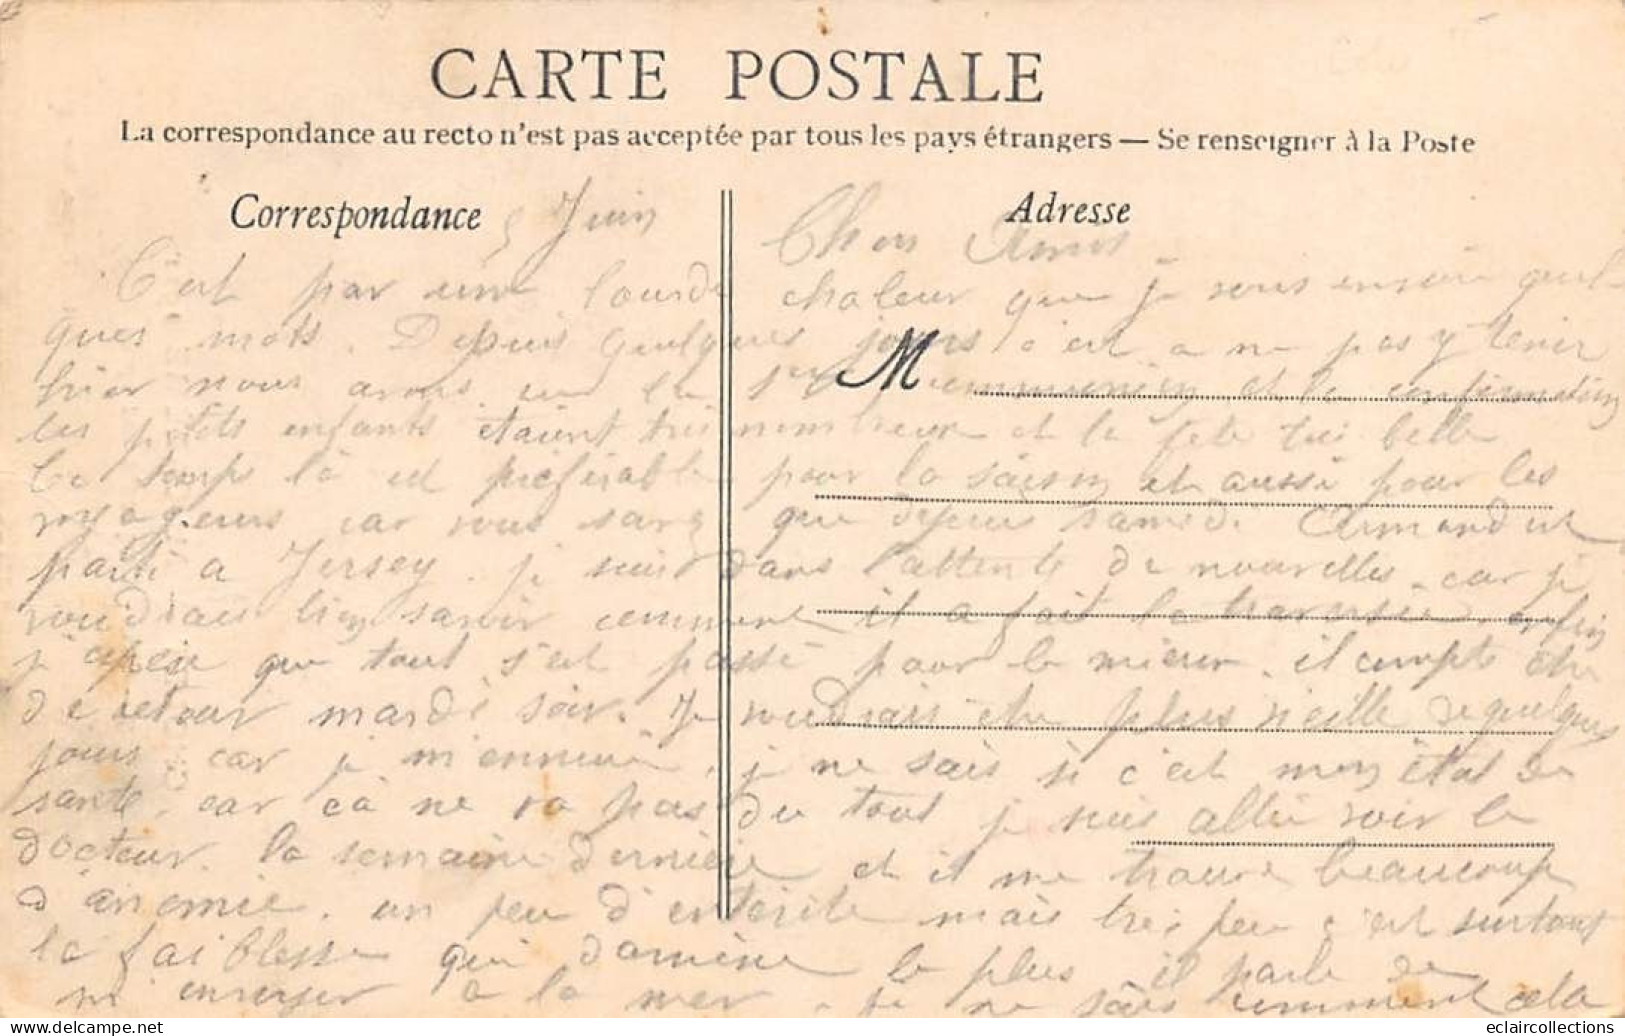 CARTE POSTALE
La correspondance au recto n'est pas acceptée par tous les pays étrangers — Se renseigner à la Poste
Correspondance
Adresse
5 Juin
Chers Amis
C'est par une lourde chaleur que je vous envoie quel-
ques mots. Depuis quelques jours c'est a ne pas y tenir
M
hier nous avons eu la 1re communion et la confirmation
les petits enfants étaient très nombreux et la fete très belle
Ce temps là est préférable pour la saison et aussi pour les
voyageurs car vous savez que depuis samedi Armand est
parti a Jersey. je suis dans l'attente de nouvelles. car je
voudrais bien savoir comment il a fait la traversée. enfin
j'espère que tout s'est passé pour le mieux. il compte être
de retour mardi soir. Je voudrais être plus vieille de quelques
jours car je m'ennuie. je ne sais si c'est mon état de
santé. car cà ne va pas du tout je suis allée voir le
docteur. la semaine dernière et il me trouve beaucoup
d'anémie. un peu d'entérite mais très peu c'est surtout
la faiblesse qui domine le plus il parle de
m'envoyer a la mer. je ne sais comment cela
eclaircollections